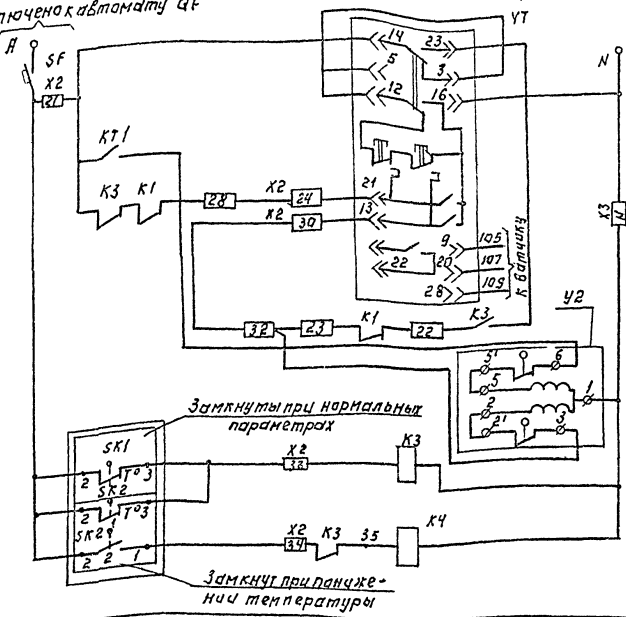 ключено к автомату QF
A
SF
X2
21
KT1
K3 K1
28
X2
24
X2
30
14
5
12
23
3
16
УТ
N
21
13
9
20
22
28
105
107
109
К датчику
X3
N
У2
32
23
K1
22
K3
5'
6
5
1
2
2'
3
Замкнуты при нормальных
параметрах
SK1
2
T°
3
SK2
2
1
T°
3
SK2
2
2
1
X2
33
K3
X2
34
K3
35
K4
Замкнут при пониже-
нии температуры